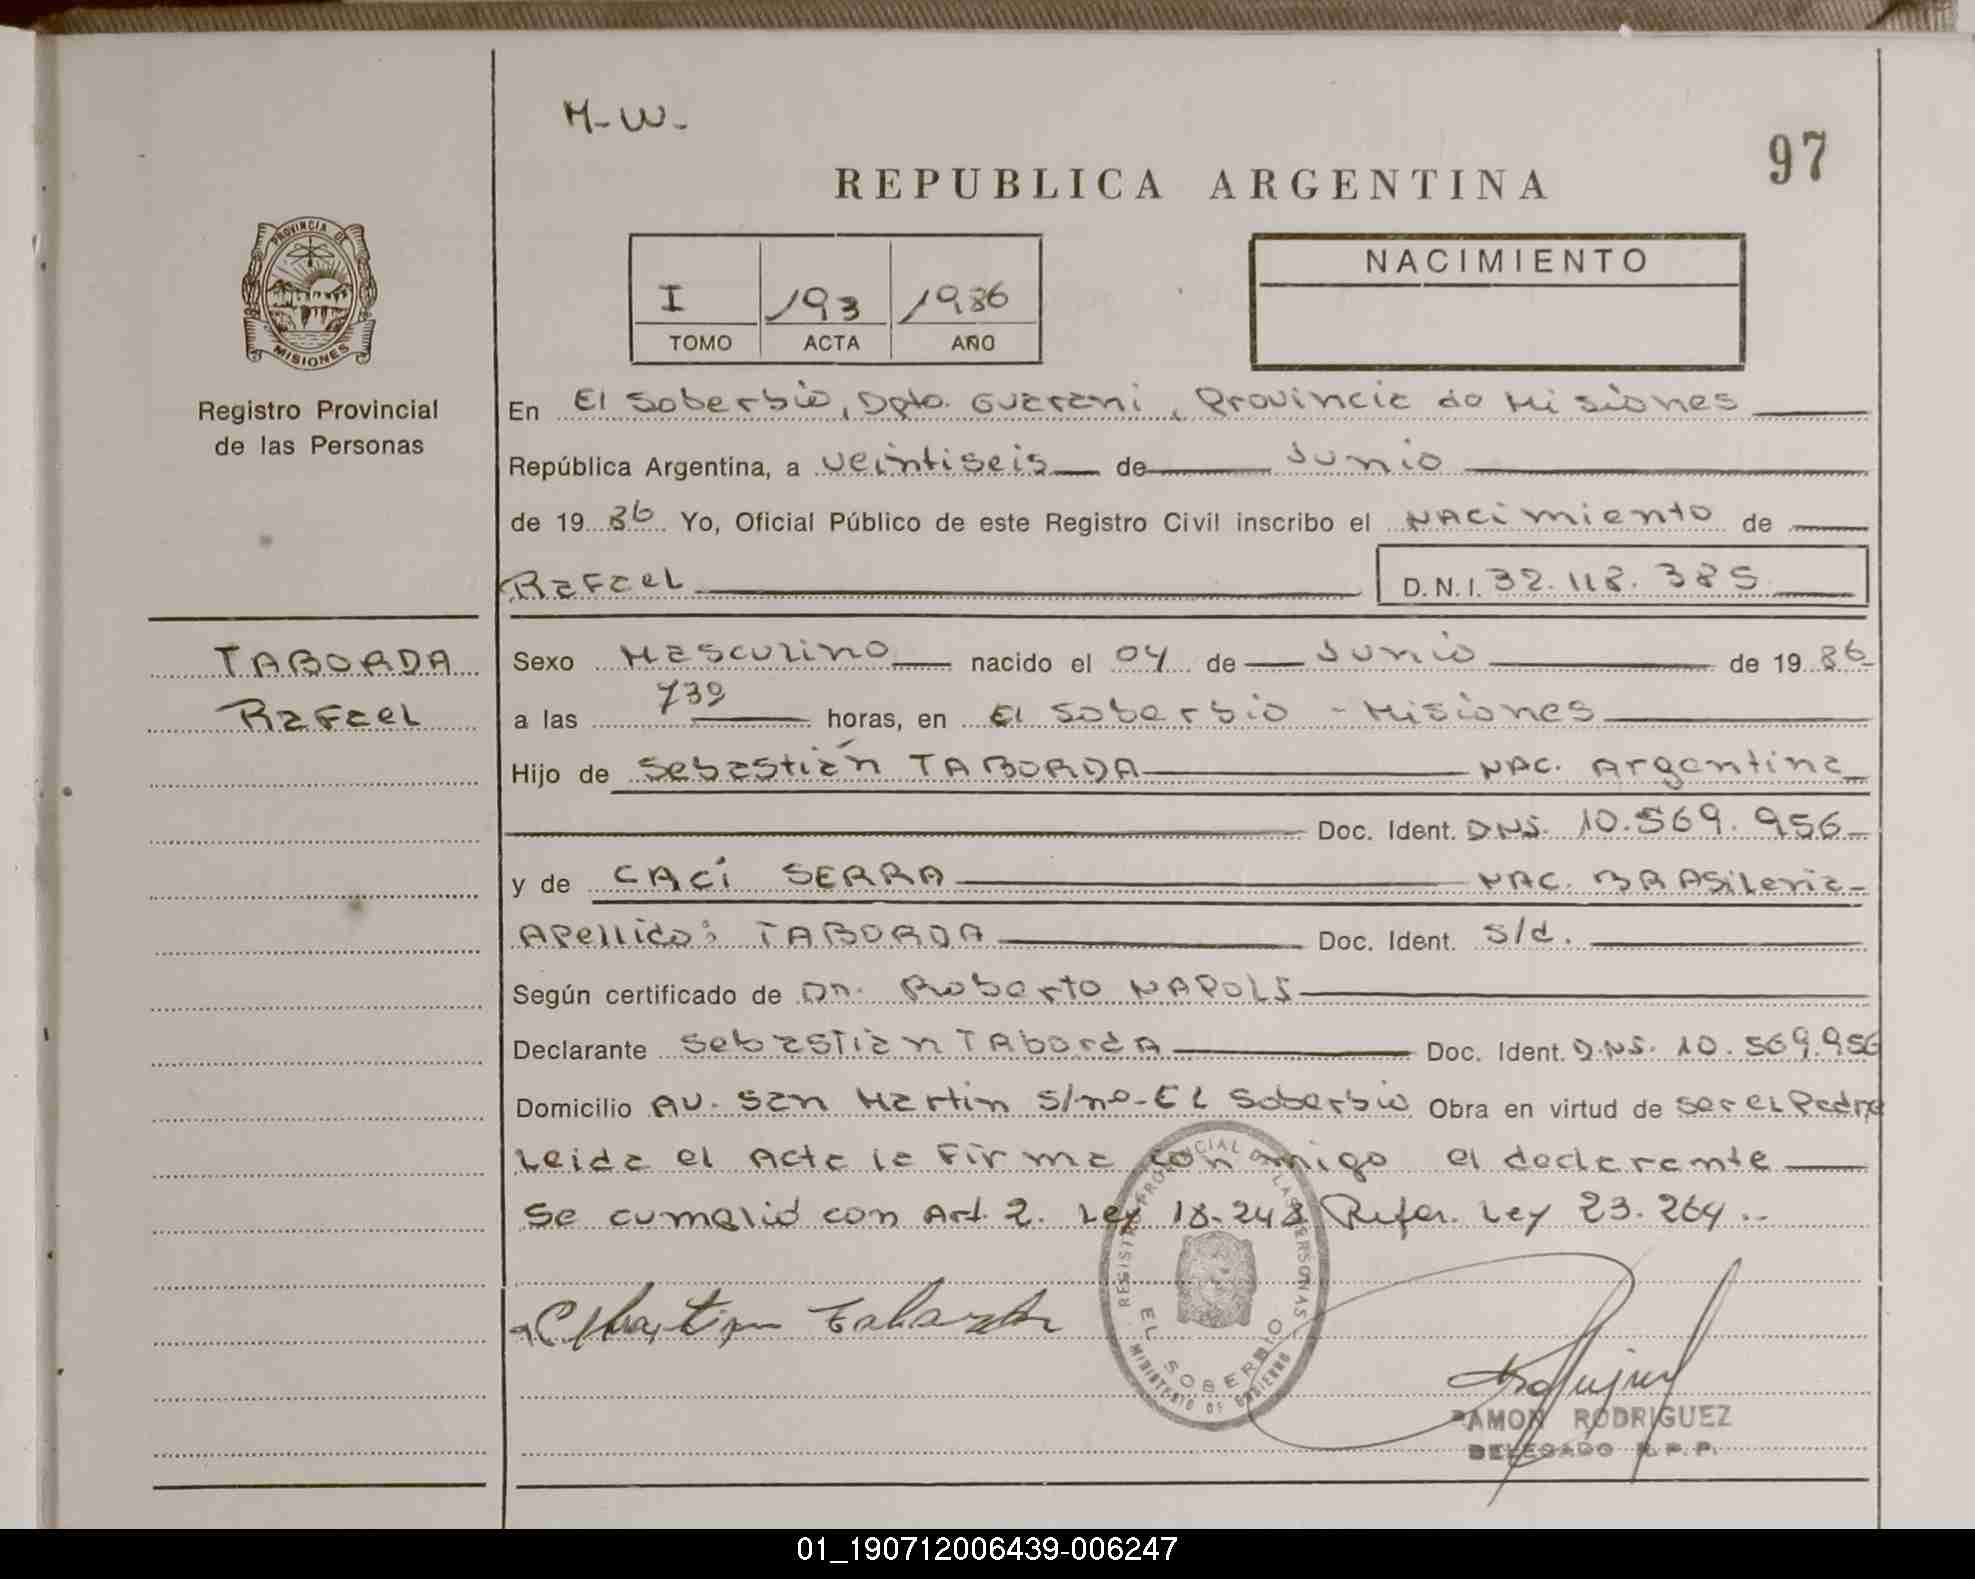 M-W-
97
REPUBLICA ARGENTINA
PROVINCIA DE
MISIONES
Registro Provincial
de las Personas
I 193 1986
TOMO ACTA AÑO
NACIMIENTO
En El Soberbio, Dpto. Guarani, Provincia de Misiones
República Argentina, a veintiseis de Junio
de 19 86 Yo, Oficial Público de este Registro Civil inscribo el NACimiento de
Rafael D.N.I. 32.118.385
TABORDA
Rafael
Sexo Masculino nacido el 04 de Junio de 19 86
a las 730 horas, en El Soberbio - Misiones
Hijo de Sebastián TABORDA NAC. Argentina
Doc. Ident. DNI. 10.569.956
y de CACi SERRA NAC. BRASileria
Apellido: TABORDA Doc. Ident. s/d.
Según certificado de Dn. Roberto NAPOLI
Declarante Sebastián TABordA Doc. Ident. D.NI. 10.569.956
Domicilio AV. San Martin s/nº-El Soberbio Obra en virtud de ser el Padre
Leida el Acta la Firma conmigo el declarante
Se cumplió con Art. 2. Ley 18.248 Refer. Ley 23.264.-
REGISTRO PROVINCIAL DE LAS PERSONAS
EL SOBERBIO
MINISTERIO DE GOBIERNO
Sebastian Taborda
RAMON RODRIGUEZ
DELEGADO R.P.P.
01_190712006439-006247